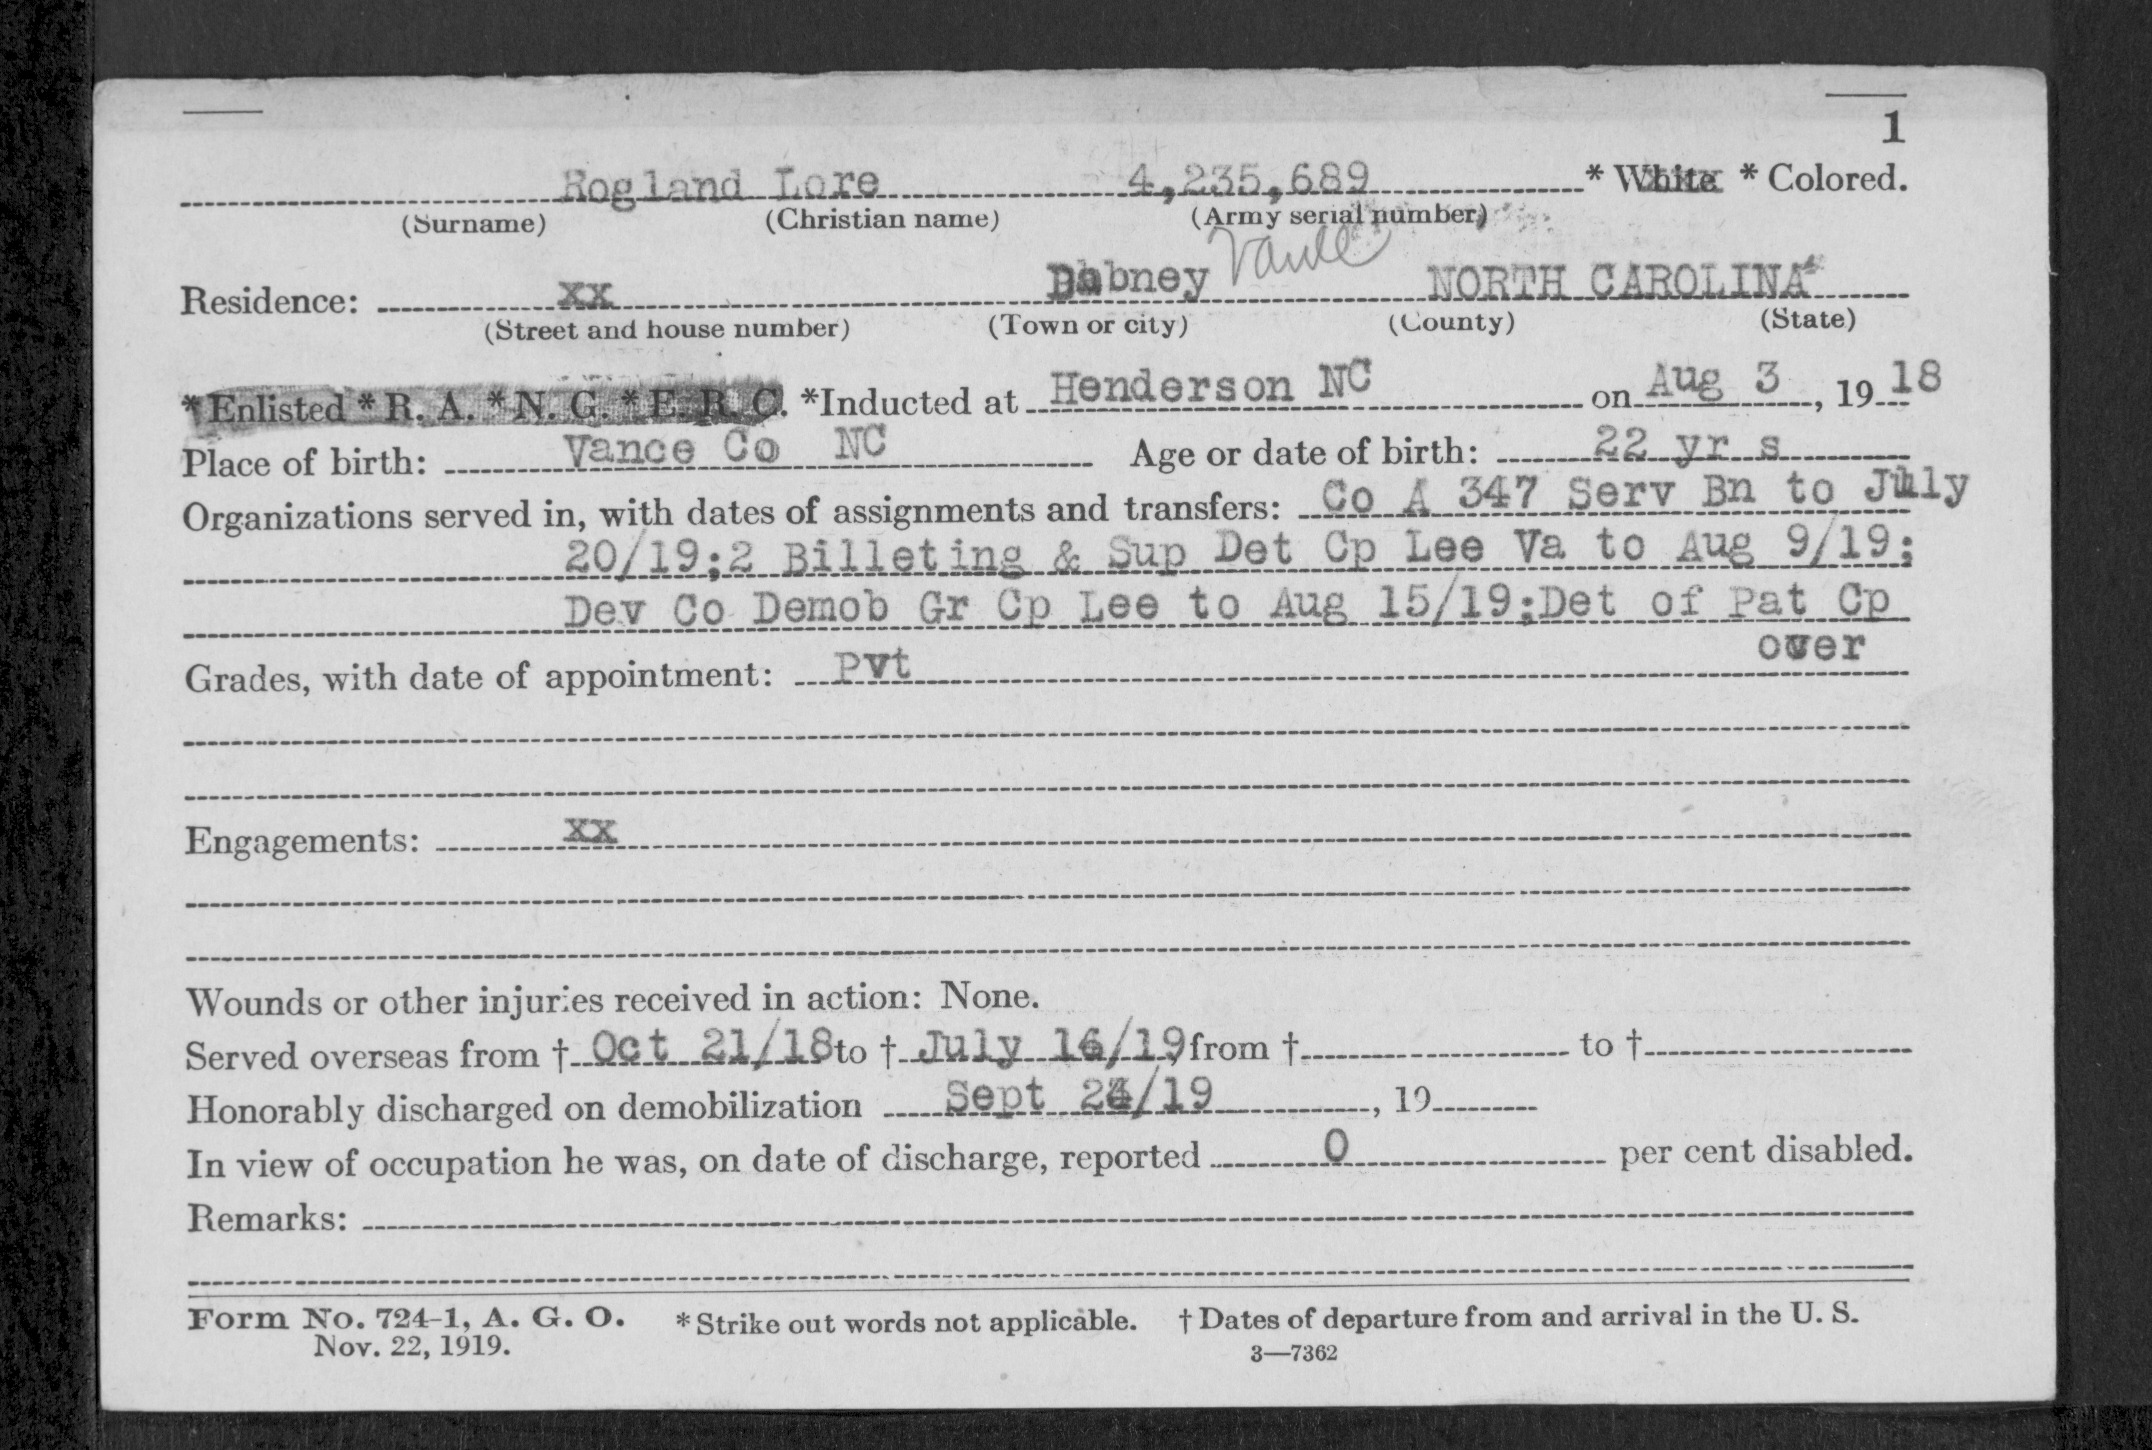 1
Rogland Lore 4,235,689 * White * Colored.
(Surname) (Christian name) (Army serial number)
Residence: xx Dabney Vance NORTH CAROLINA
(Street and house number) (Town or city) (County) (State)
*Enlisted *R. A. *N. G. *E. R. C. *Inducted at Henderson NC on Aug 3, 1918
Place of birth: Vance Co NC Age or date of birth: 22 yr s
Organizations served in, with dates of assignments and transfers: Co A 347 Serv Bn to July
20/19;2 Billeting & Sup Det Cp Lee Va to Aug 9/19;
Dev Co Demob Gr Cp Lee to Aug 15/19;Det of Pat Cp
over
Grades, with date of appointment: Pvt
Engagements: xx
Wounds or other injuries received in action: None.
Served overseas from † Oct 21/18 to † July 16/19, from † to †
Honorably discharged on demobilization Sept /19, 19
In view of occupation he was, on date of discharge, reported 0 per cent disabled.
Remarks:
Form No. 724-1, A. G. O. * Strike out words not applicable. † Dates of departure from and arrival in the U. S.
Nov. 22, 1919. 3—7362